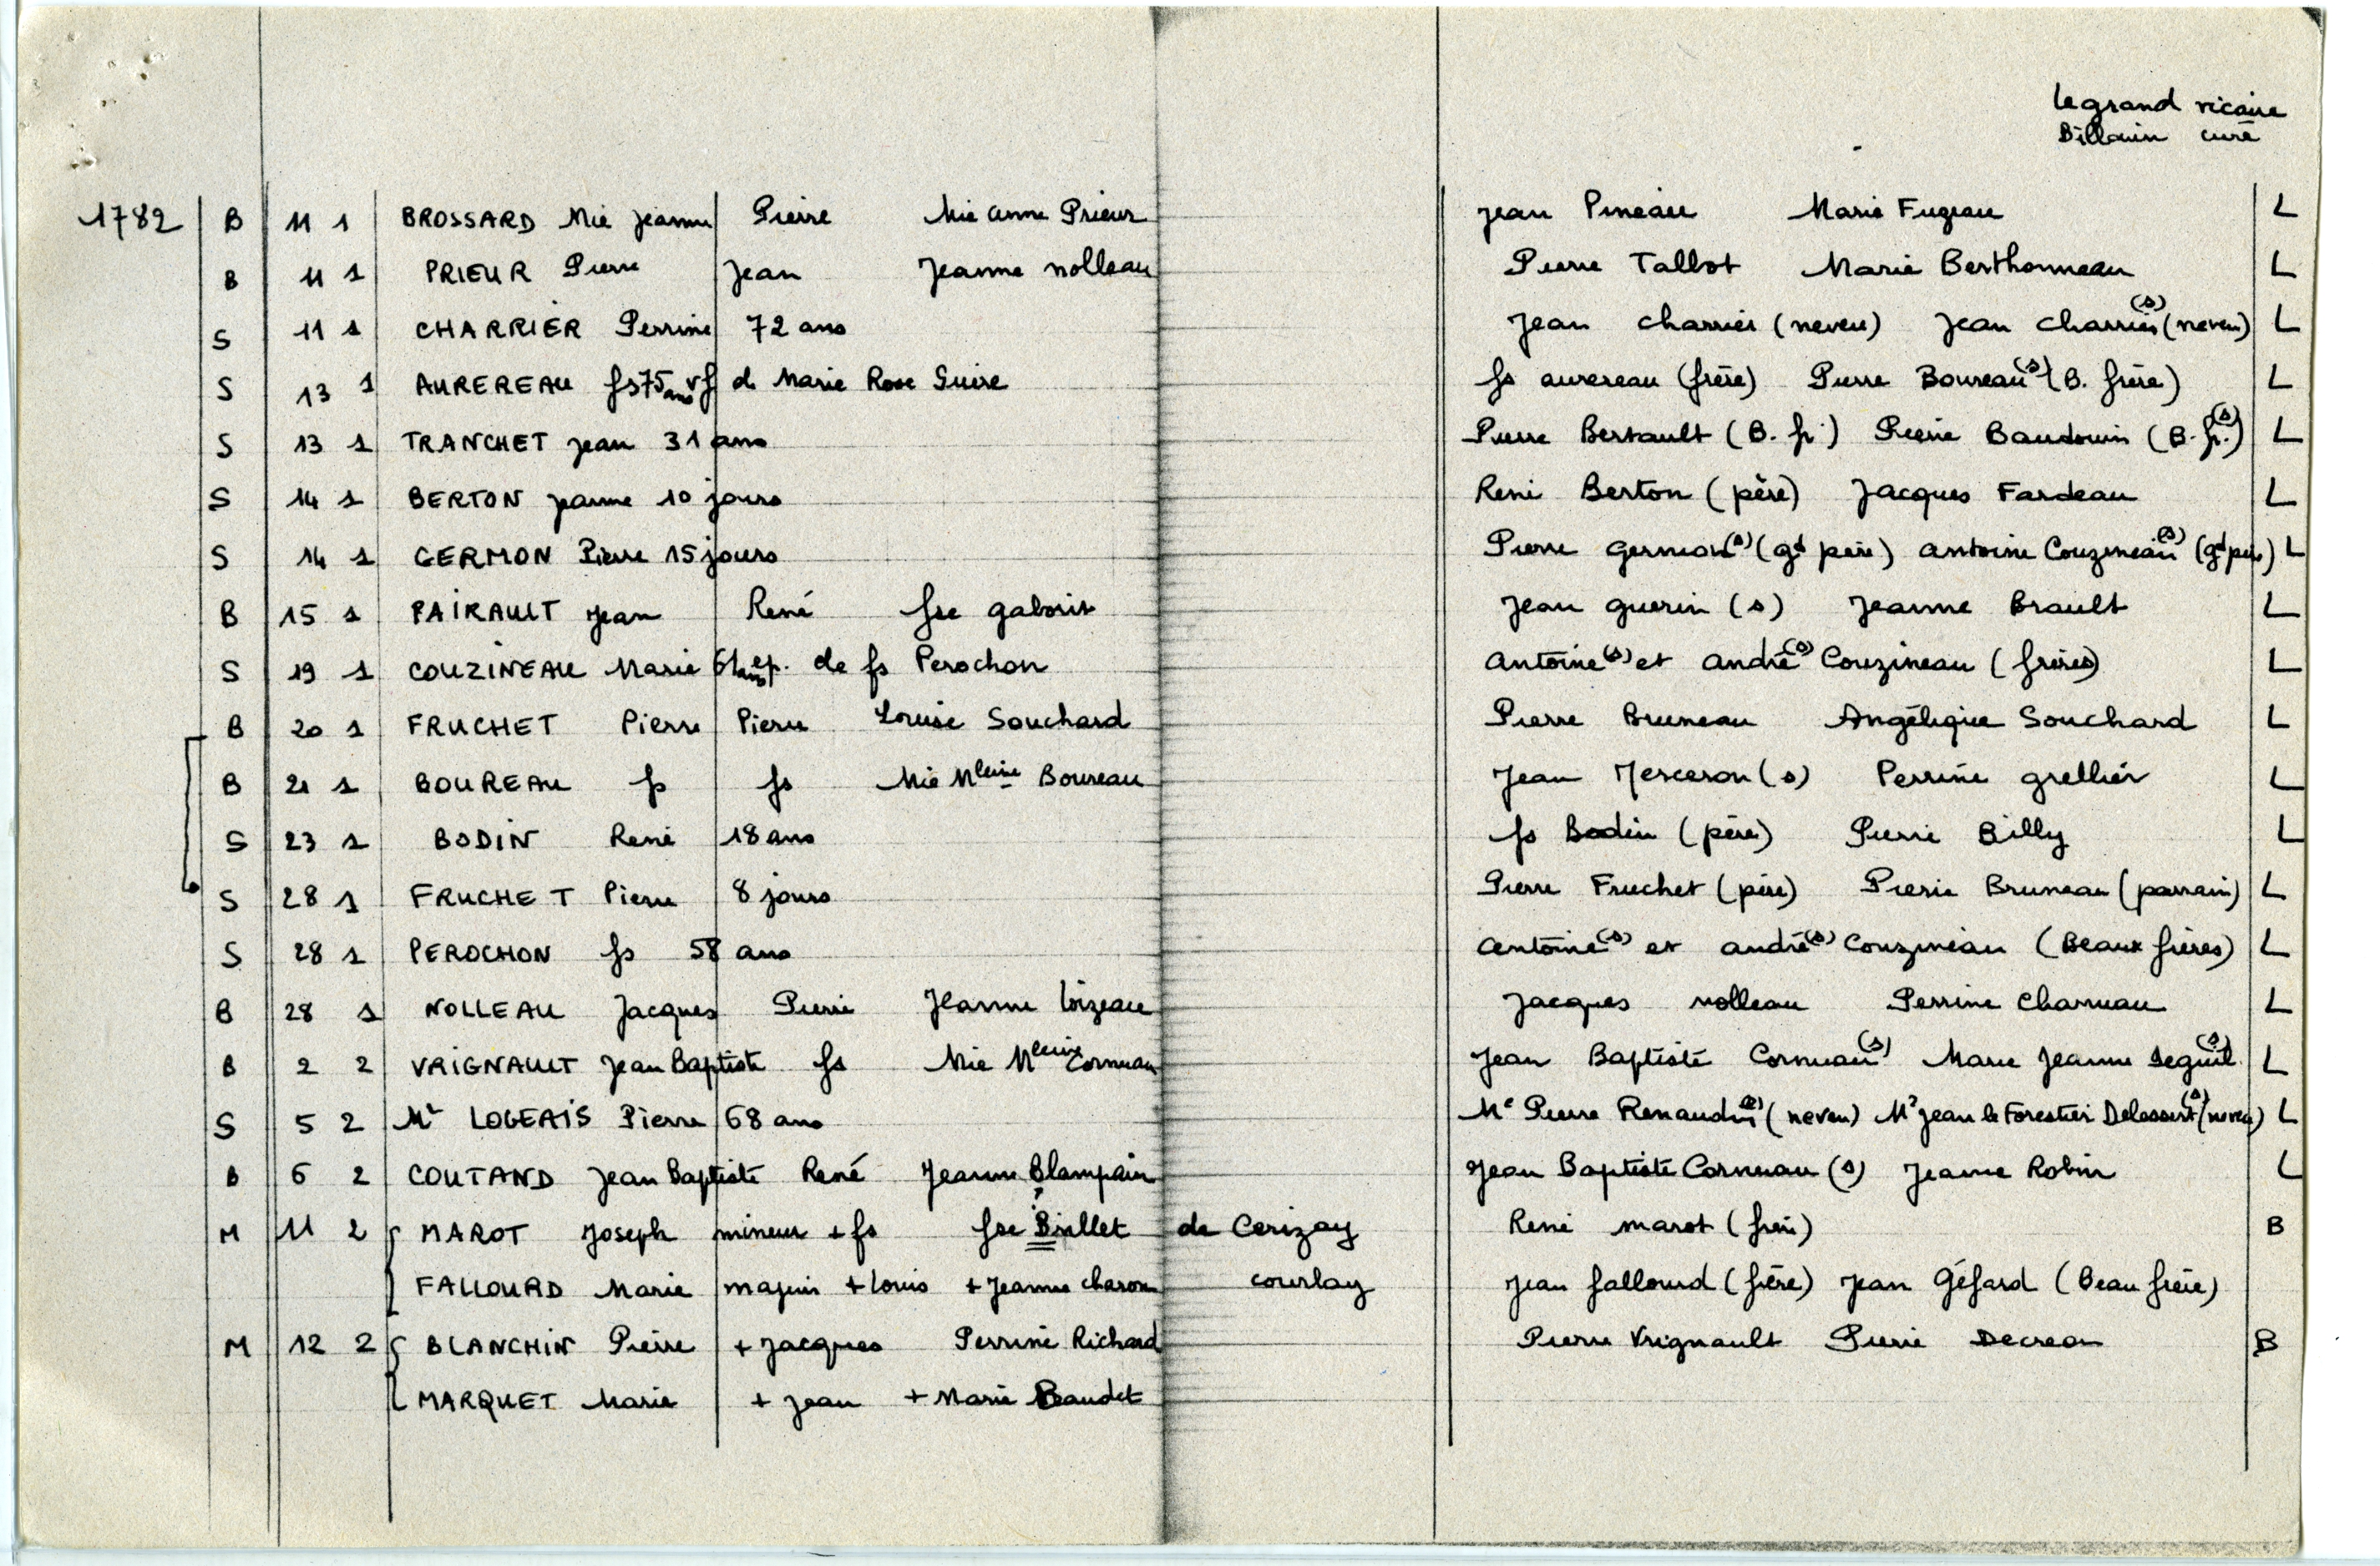 Legrand vicaire
Billouin curé
1782 B 11 1 BROSSARD Mie Jeanne Pierre Mie Anne Prieur Jean Pineau Marie Fugeau L
B 11 1 PRIEUR Pierre Jean Jeanne Nolleau Pierre Talbot Marie Berthonneau L
S 11 1 CHARRIER Perrine 72 ans Jean Charrier (neveu) Jean Charrier (s) (neveu) L
S 13 1 AUREREAU fs 75 ans vf de Marie Rose Guire fs Aurereau (frère) Pierre Boureau (s) (B. frère) L
S 13 1 TRANCHET Jean 31 ans Pierre Bertault (B. fr.) Pierre Baudouin (B. fr.) (s) L
S 14 1 BERTON Jeanne 10 jours René Berton (père) Jacques Fardeau L
S 14 1 GERMON Pierre 15 jours Pierre Germon (s) (gd père) Antoine Couzineau (s) (gd père) L
B 15 1 PAIRAULT Jean René fse Gaborit Jean Guerin (s) Jeanne Brault L
S 19 1 COUZINEAU Marie 61 ans ep. de fs Perochon Antoine (s) et André (s) Couzineau (frères) L
B 20 1 FRUCHET Pierre Pierre Louise Souchard Pierre Bruneau Angélique Souchard L
B 21 1 BOUREAU fs fs Mie Mleine Boureau Jean Merceron (s) Perrine Grellier L
S 23 1 BODIN René 18 ans fs Bodin (père) Pierre Billy L
S 28 1 FRUCHET Pierre 8 jours Pierre Fruchet (père) Pierre Bruneau (parrain) L
S 28 1 PEROCHON fs 58 ans Antoine (s) et André (s) Couzineau (Beaux frères) L
B 28 1 NOLLEAU Jacques Pierre Jeanne Loizeau Jacques Nolleau Perrine Charruau L
B 2 2 VRIGNAULT Jean Baptiste fs Mie Mleine Cornuau Jean Baptiste Cornuau (s) Marie Jeanne Seguit (s) L
S 5 2 Mr LOGEAIS Pierre 68 ans Me Pierre Renaudin (s) (neveu) Mr Jean le Forestier (s) (neveu) L
B 6 2 COUTAND Jean Baptiste René Jeanne Blampain Jean Baptiste Cornuau (s) Jeanne Robin L
M 11 2 MAROT Joseph mineur + fs fse Billet de Cerizay René Marot (frère) B
FALLOURD Marie majeure + Louis + Jeanne Charon Courlay Jean Fallourd (frère) Jean Géfard (Beau frère)
M 12 2 BLANCHIN Pierre + Jacques Perrine Richard Pierre Vrignault Pierre Decreon B
MARQUET Marie + Jean + Marie Baudet